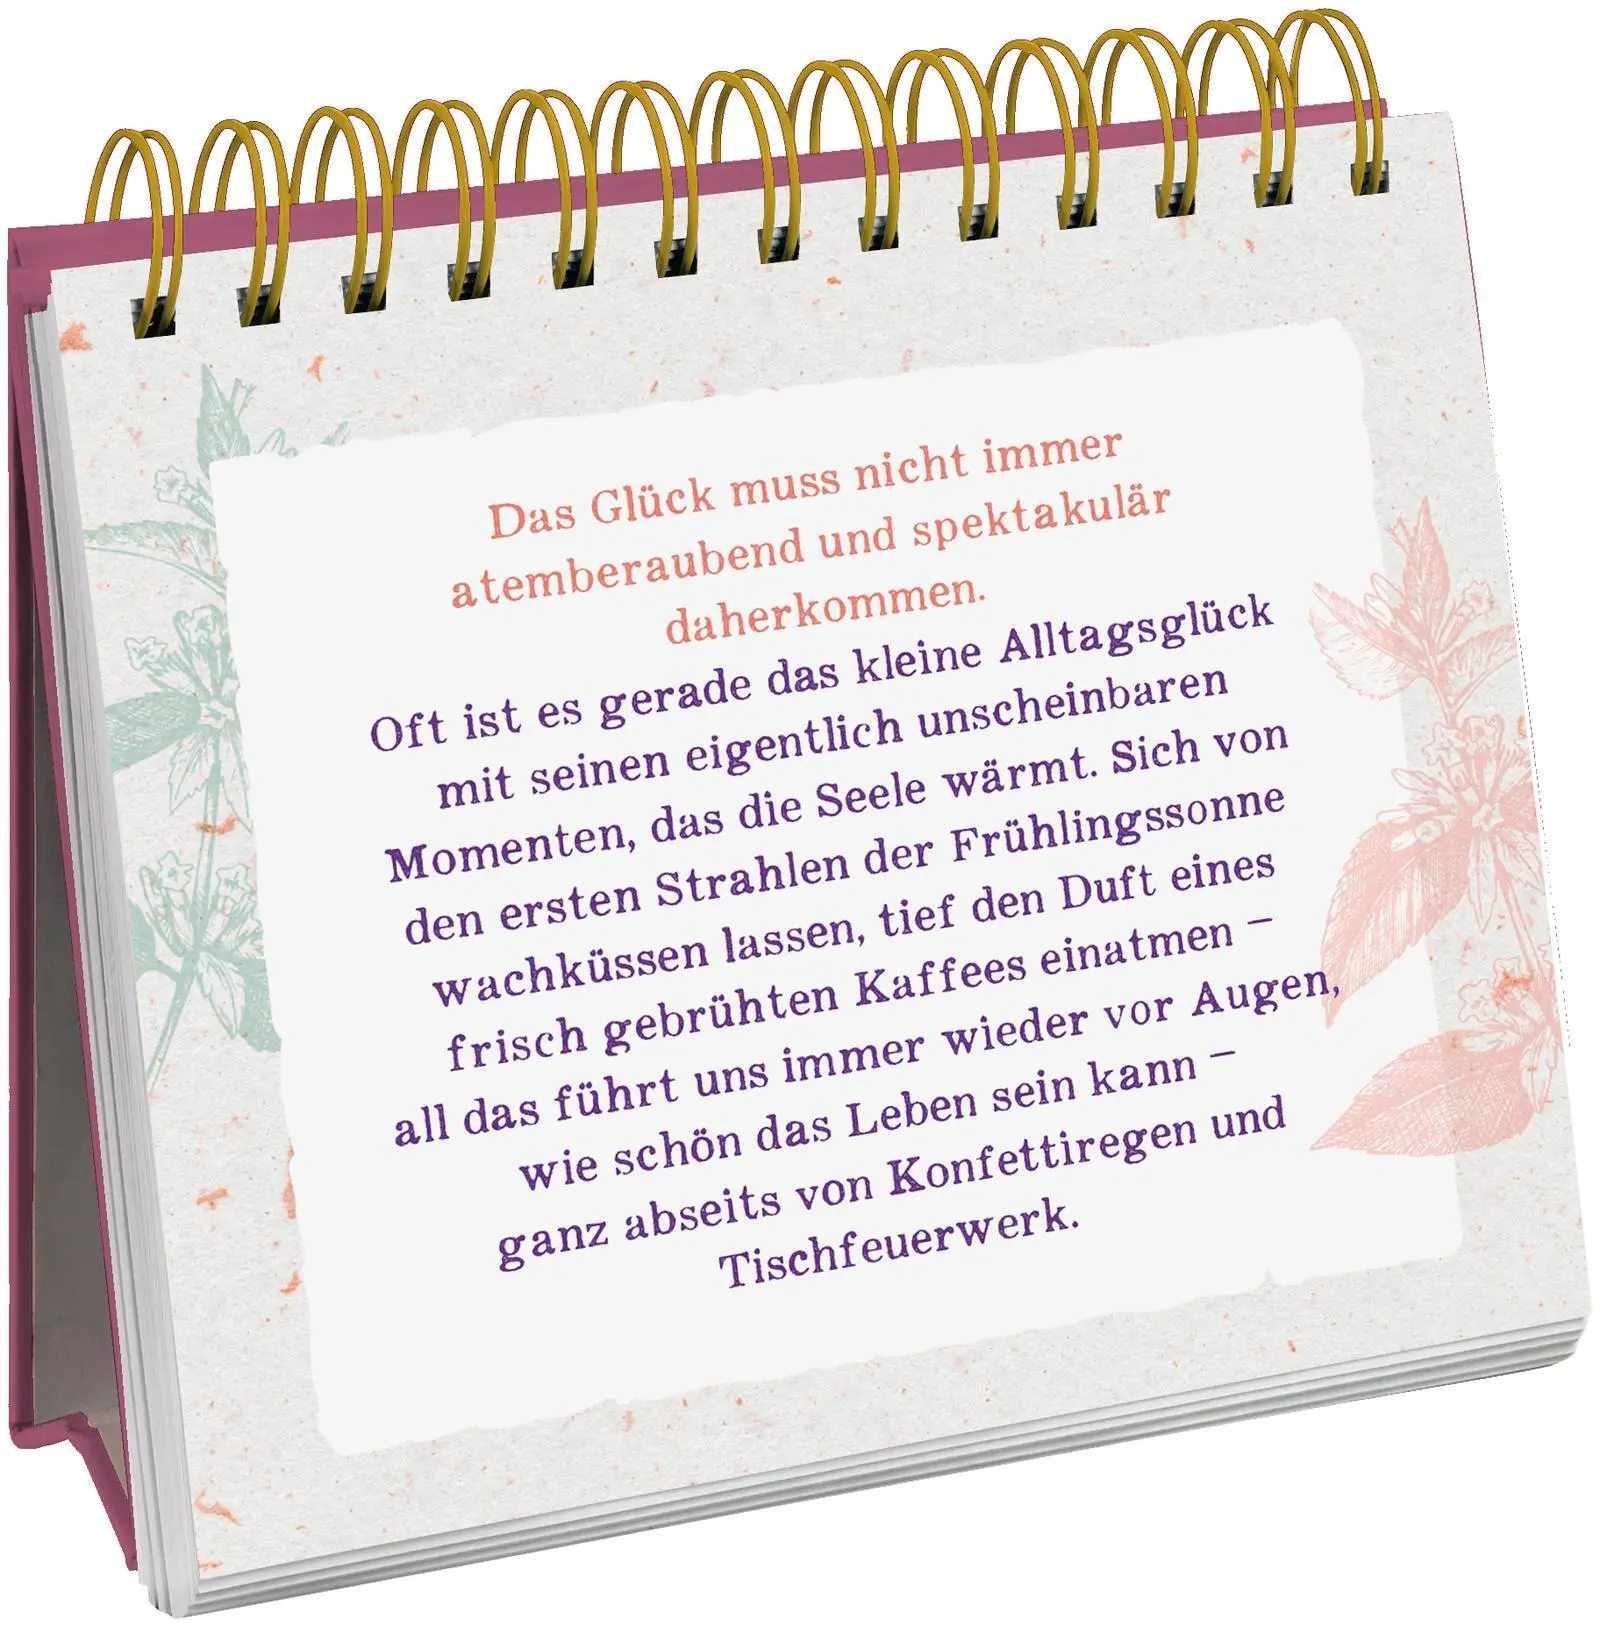 Das Glück muss nicht immer
atemberaubend und spektakulär
daherkommen.
Oft ist es gerade das kleine Alltagsglück
mit seinen eigentlich unscheinbaren
Momenten, das die Seele wärmt. Sich von
den ersten Strahlen der Frühlingssonne
wachküssen lassen, tief den Duft eines
frisch gebrühten Kaffees einatmen –
all das führt uns immer wieder vor Augen,
wie schön das Leben sein kann –
ganz abseits von Konfettiregen und
Tischfeuerwerk.